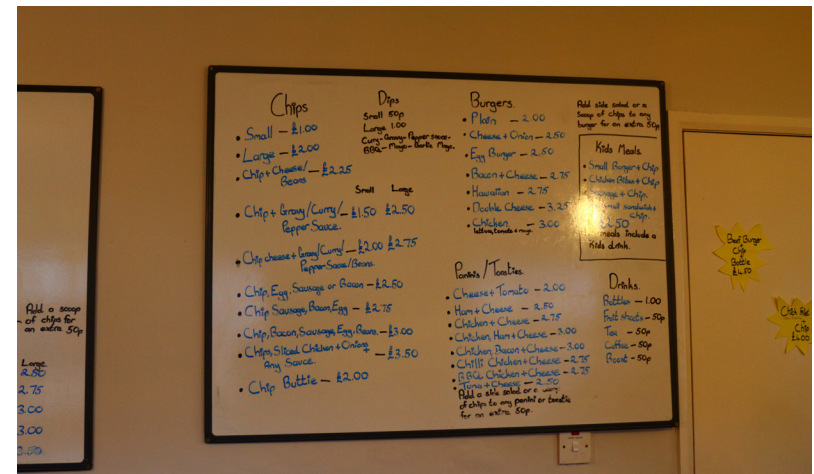 Chips
• Small – £1.00
• Large – £2.00
• Chip + Cheese/ – £2.25
Beans
Small Large
• Chip + Gravy/Curry/ – £1.50 £2.50
Pepper Sauce.
• Chip cheese + Gravy/Curry/ – £2.00 £2.75
Pepper Sauce/Beans.
• Chip, Egg, Sausage or Bacon – £2.50
• Chip Sausage, Bacon, Egg – £2.75
• Chip, Bacon, Sausage, Egg, Beans – £3.00
• Chips, Sliced Chicken + Onions + – £3.50
Any Sauce.
• Chip Buttie – £2.00
Dips
Small 50p
Large 1.00
Curry - Gravy - Pepper sauce -
BBQ - Mayo - Garlic Mayo.
Burgers
• Plain – 2.00
• Cheese + Onion – 2.50
• Egg Burger – 2.50
• Bacon + Cheese – 2.75
• Hawaiian – 2.75
• Double Cheese – 3.25
• Chicken – 3.00
lettuce, tomato + mayo.
Add side salad or a
scoop of chips to any
burger for an extra 50p
Kids Meals
• Small Burger + Chip
• Chicken Bites + Chip
Sausage + Chip.
sandwich +
Chip.
2.50
meals include a
Kids drink.
Paninis/Toasties.
• Cheese + Tomato – 2.00
• Ham + Cheese – 2.50
• Chicken + Cheese – 2.75
• Chicken, Ham + Cheese – 3.00
• Chicken, Bacon + Cheese – 3.00
• Chilli Chicken + Cheese – 2.75
• BBQ Chicken + Cheese – 2.75
• Tuna + Cheese – 2.50
Add a side salad or a
of chips to any panini or toastie
for an extra 50p.
Drinks.
Bottles – 1.00
Fruit shoots – 50p
Tea – 50p
Coffee – 50p
Roast – 50p
Add a scoop
of chips for
an extra 50p
Large
2.50
2.75
3.00
3.00
3.50
Beef Burger
Chip
Bottle
£4.50
Chip
£4.00